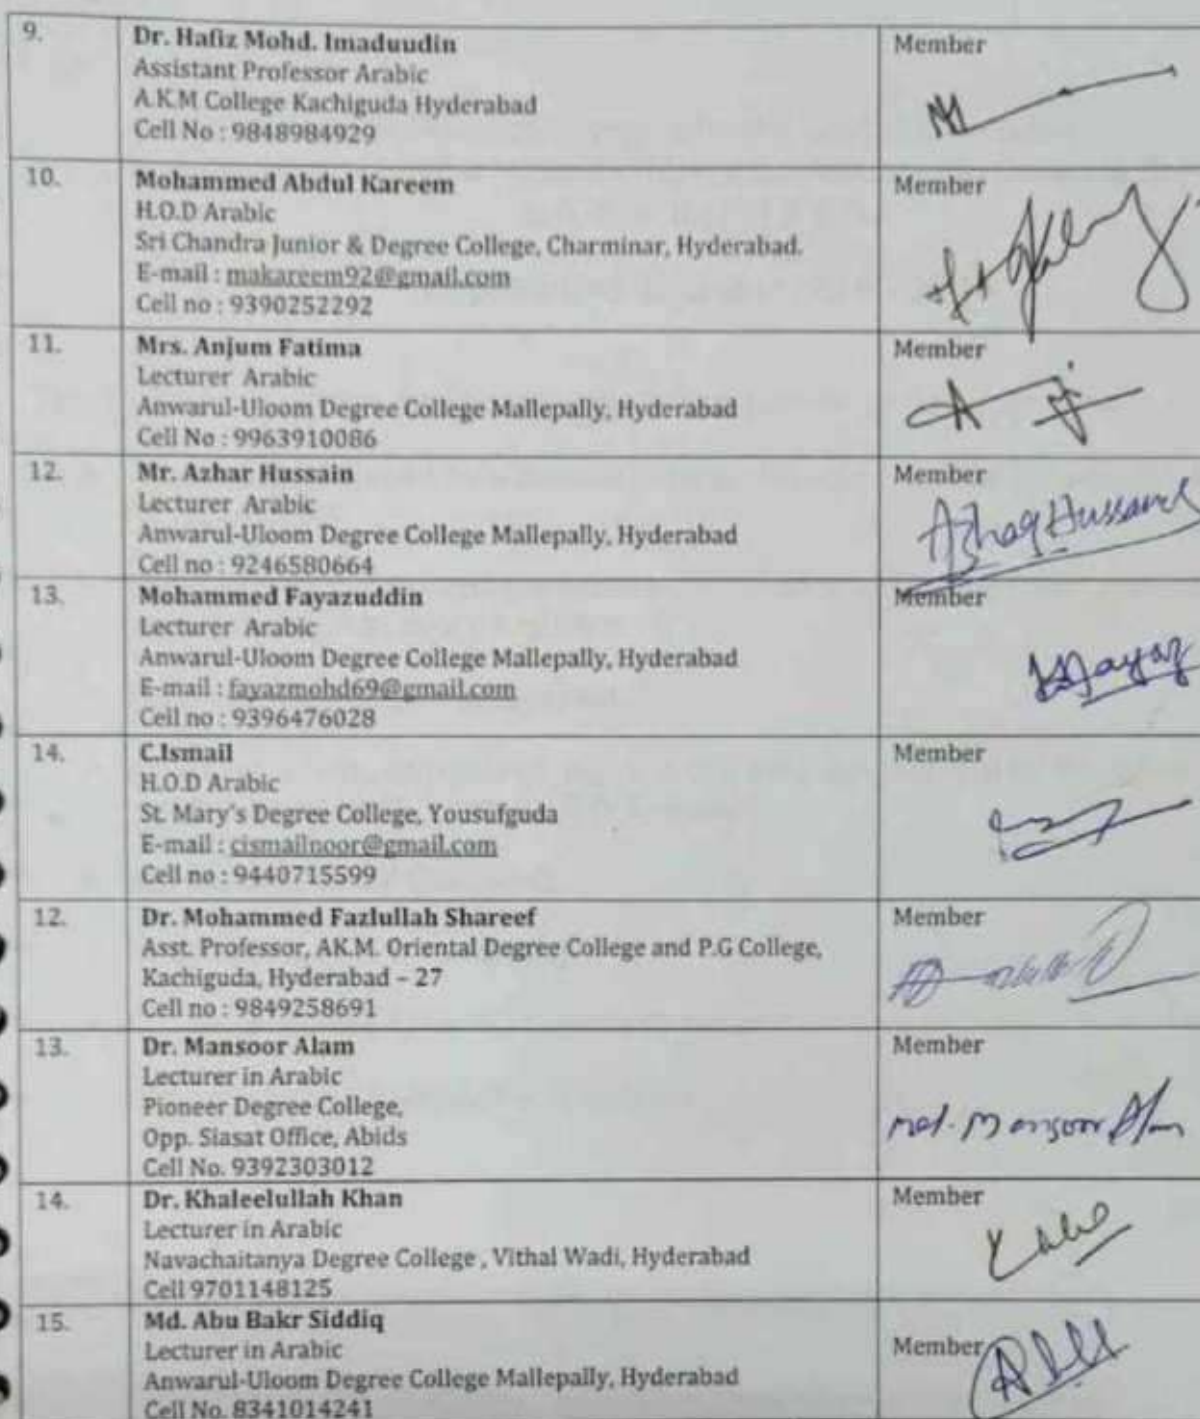 9. Dr. Hafiz Mohd. Imaduudin Member
Assistant Professor Arabic
A.K.M College Kachiguda Hyderabad
Cell No : 9848984929
10. Mohammed Abdul Kareem Member
H.O.D Arabic
Sri Chandra Junior & Degree College, Charminar, Hyderabad.
E-mail : makareem92@gmail.com
Cell no : 9390252292
11. Mrs. Anjum Fatima Member
Lecturer Arabic
Anwarul-Uloom Degree College Mallepally, Hyderabad
Cell No : 9963910086
12. Mr. Azhar Hussain Member
Lecturer Arabic
Anwarul-Uloom Degree College Mallepally, Hyderabad
Cell no : 9246580664
13. Mohammed Fayazuddin Member
Lecturer Arabic
Anwarul-Uloom Degree College Mallepally, Hyderabad
E-mail : fayazmohd69@gmail.com
Cell no : 9396476028
14. C.Ismail Member
H.O.D Arabic
St. Mary's Degree College, Yousufguda
E-mail : cismailnoor@gmail.com
Cell no : 9440715599
12. Dr. Mohammed Fazlullah Shareef Member
Asst. Professor, AK.M. Oriental Degree College and P.G College,
Kachiguda, Hyderabad – 27
Cell no : 9849258691
13. Dr. Mansoor Alam Member
Lecturer in Arabic
Pioneer Degree College,
Opp. Siasat Office, Abids
Md. Mansoor Alam
Cell No. 9392303012
14. Dr. Khaleelullah Khan Member
Lecturer in Arabic
Navachaitanya Degree College , Vithal Wadi, Hyderabad
Cell 9701148125
15. Md. Abu Bakr Siddiq Member
Lecturer in Arabic
Anwarul-Uloom Degree College Mallepally, Hyderabad
Cell No. 8341014241